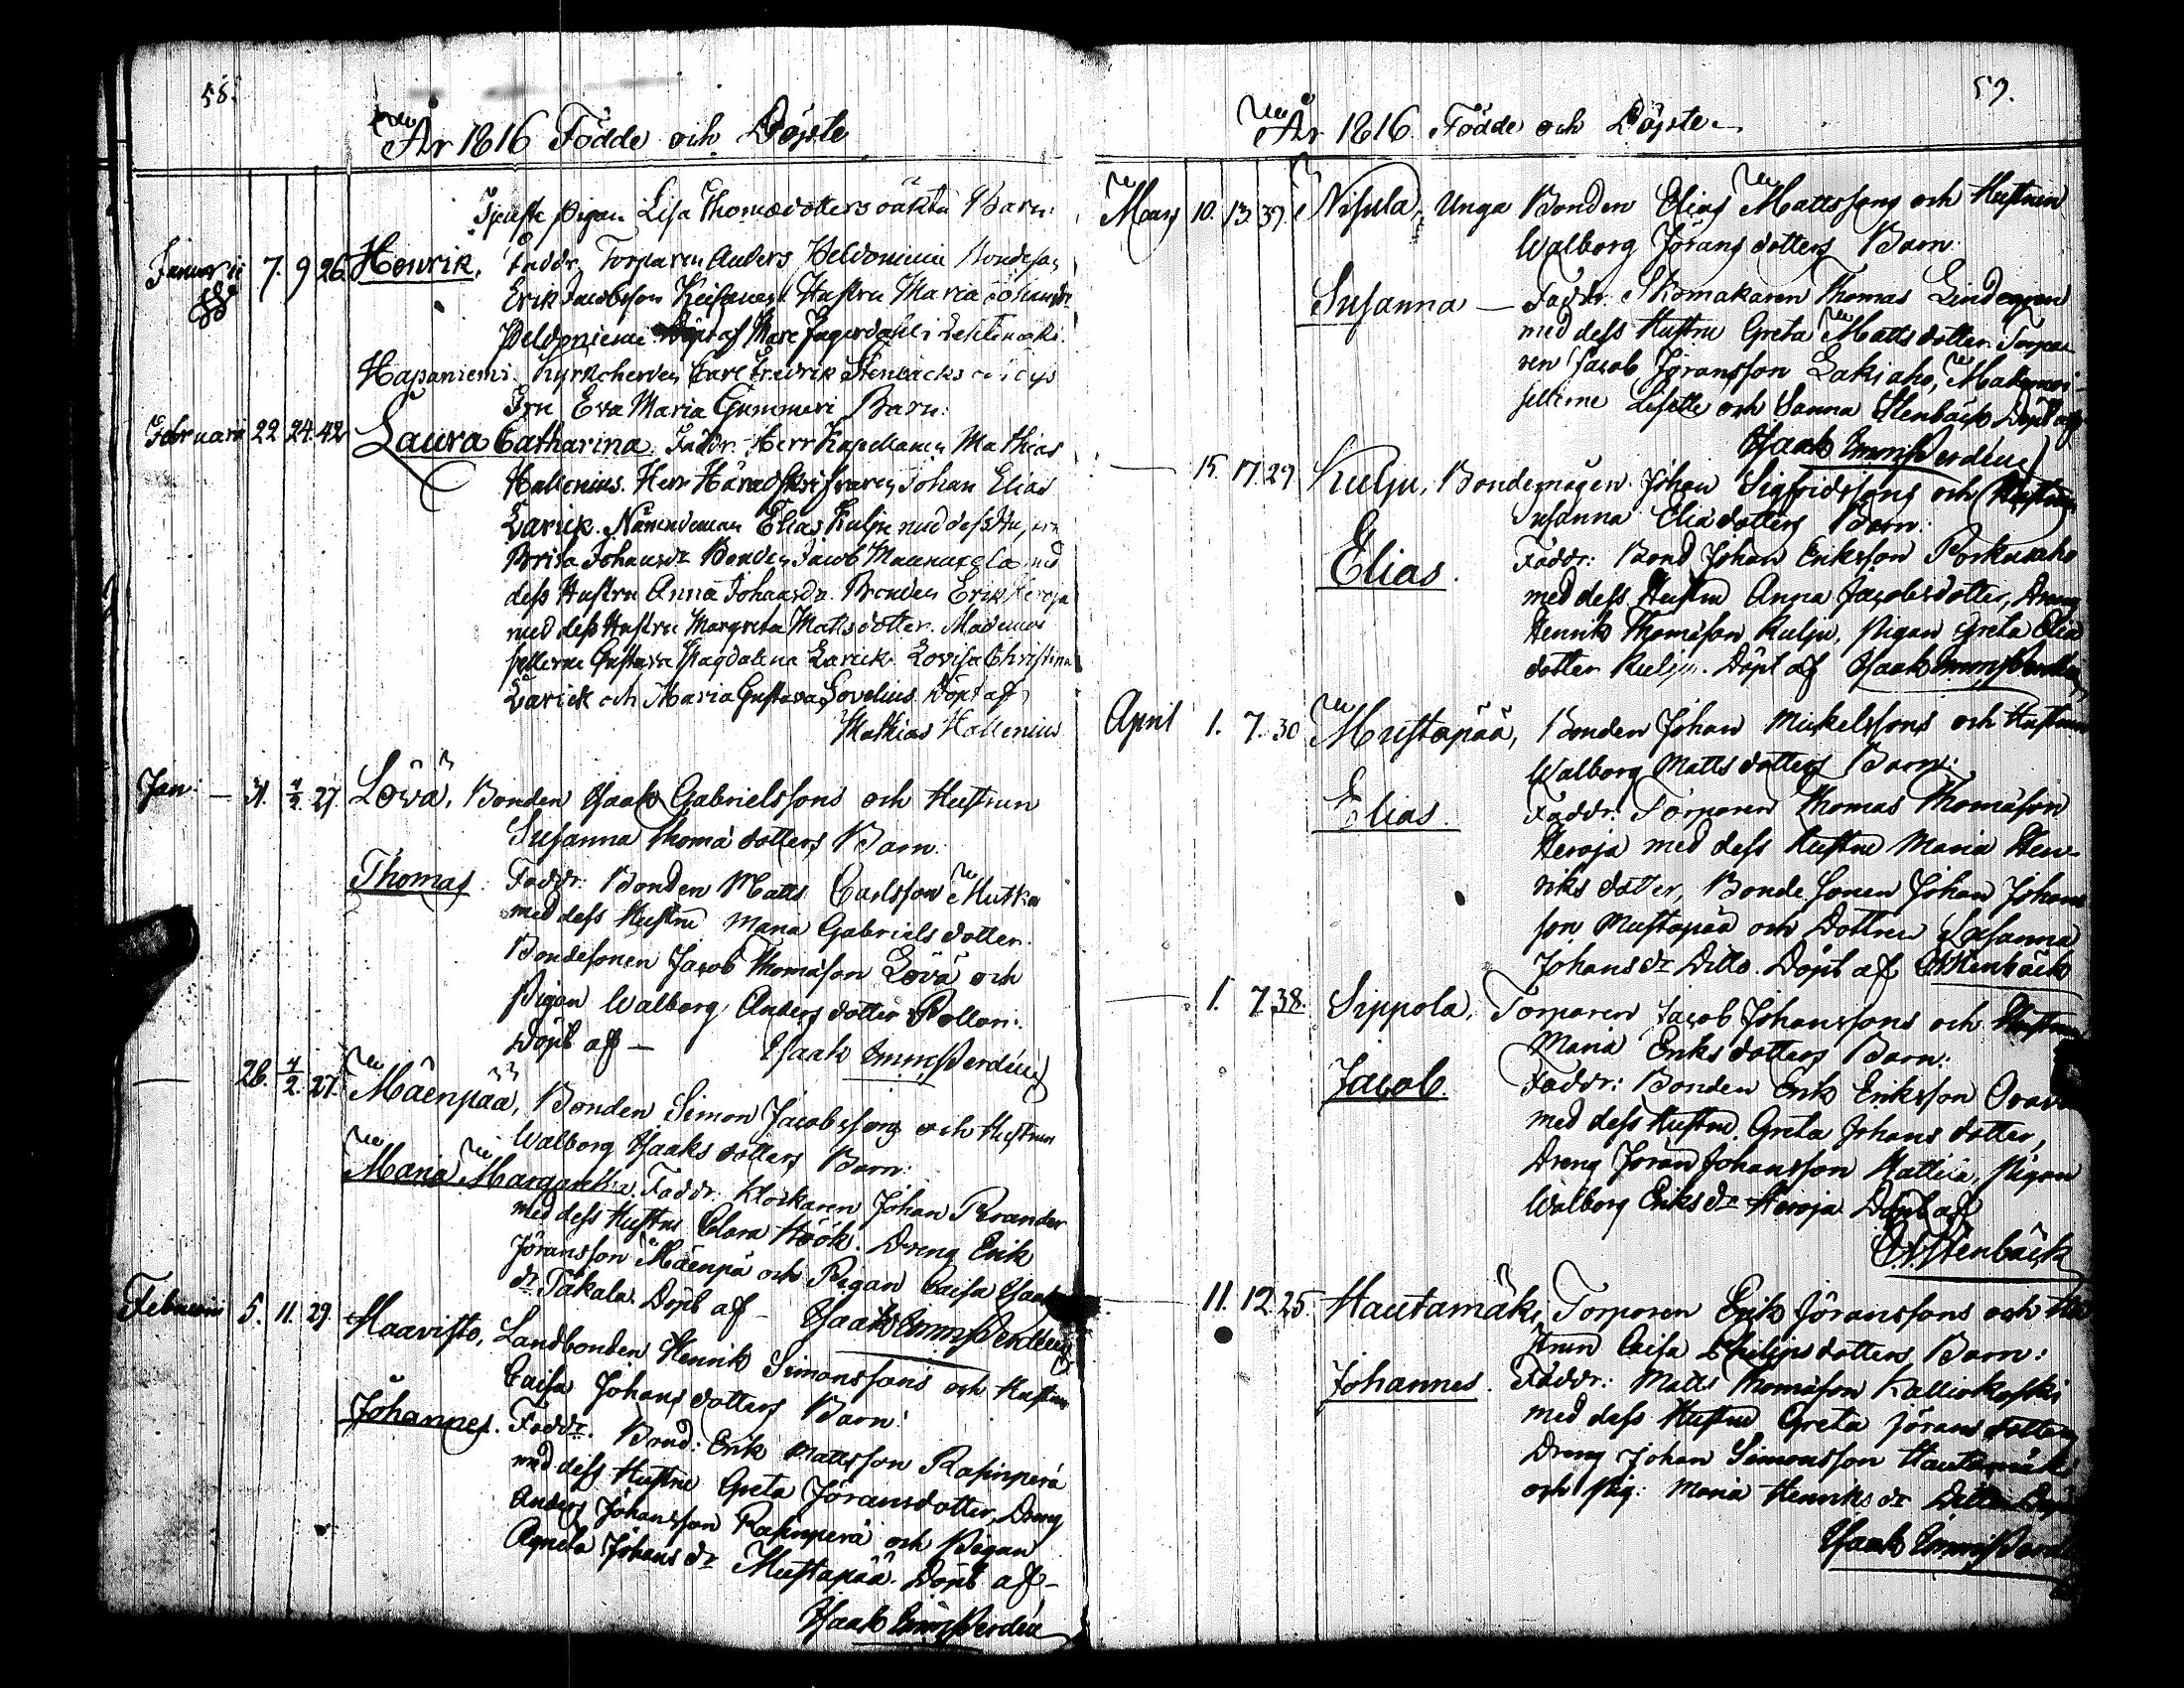 58.
År 1816 Födde och Döpte
Tjenste Pigan Lisa Thomædotters oäkta Barn:
Januarii 7. 9 26. Henrik. Faddr. Torparen Anders Peldoniemi Bondeson
Erik Jacobsson Hustru Maria Johansdr
Peldoniemi Döpt af Mare Fagerdahl i Lehtimäki.
Hapaniemi. Kyrkoherden Carl Fredrik Stenbäcks och dess
Fru Eva Maria Gummeri Barn:
Februarii 22 24. 42 Laura Catharina. Faddr. Herr Kapellanen Mathias
Hallenius. Herr Häradskrifvaren Johan Elias
Larick. Nämndeman Elias Kulju med dess Hustru
Brita Johansdr Bonden Jacob med
dess Hustru Anna Johansdr. Bonden Erik Heroja
med dess Hustru Margreta Mattsdotter. Mademoi
sellerne Gustava Magdalena Larick Lovisa Christina
Larick och Maria Gustava Lovelius. Döpt af
Mathias Hallenius
Jan: — 31. 4/2. 27. Lövä, Bonden Isaak Gabrielssons och Hustrun
Susanna Thomä dotters Barn:
Thomas. Faddr. Bonden Matts Carlsson Mutka
med dess Hustru Maria Gabriels dotter.
Bondesonen Jacob Thomäson Lövä och
Pigan Walborg Anders dotter Pollari.
Döpt af — Isaak Emm. Perdén
— 28. 4/2. 27. Mäenpää, Bonden Simon Jacobssons och Hustrun
Walborg Isaaks dotters Barn:
Maria Margaretha. Faddr. Klockaren Johan Brander
med dess Hustru Clara Höök. Dreng Erik
Jöransson Mäenpä och Pigan Caisa Isaaks
dr Takala. Döpt af — Isaak Emm. Perdén
Februarii 5. 11. 29. Haavisto, Landbonden Henrik Simonssons och Hustrun
Caisa Johans dotters Barn:
Johannes. Faddr. Bond: Erik Mattsson Rasinperä
med dess Hustru Greta Jöransdotter, Dreng
Anders Johansson Rasinperä och Pigan
Agneta Johans dr Mustapää. Döpt af —
Isaak Emm. Perdén
59.
År 1816 Födde och Döpte
Mars 10. 13 39. Nisula, Unga Bonden Elias Mattssons och Hustrun
Walborg Jörans dotters Barn:
Susanna — Faddr. Skomakaren Thomas Lindegren
med dess Hustru Greta Matts dotter. Torpa
ren Jacob Jöransson Lakiaho, Mademoi-
sellerne Lisette och Sanna Stenbäck Döpt af
Isaak Emm. Perdén
— 15. 17. 29. Kulju, Bondemågen Johan Sigfridssons och Hustrun
Susanna Eliä dotters Barn:
Elias. Faddr: Bond Johan Eriksson Porkanaho
med dess Hustru Anna Jacobsdotter, Dreng
Henrik Thomäson Kulju, Pigan Greta Eliä
dotter Kulju. Döpt af Isaak Emm. Perdén
April 1. 7. 30 Mustapää, Bonden Johan Mickelssons och Hustrun
Walborg Matts dotters Barn:
Elias. Faddr. Torparen Thomas Thomäson
Heroja med dess Hustru Maria Hen-
riks dotter, Bonde Sonen Johan Johans
son Mustapää och Dottren Susanna
Johans dr Ditto. Döpt af Stenbäck
— 1. 7. 38. Sippola, Torparen Jacob Johanssons och Hustrun
Maria Eriks dotters Barn:
Jacob. Faddr: Bonden Erik Eriksson
med dess Hustru Greta Johans dotter,
Dreng Jöran Johansson Pigan
Walborg Eriks dr Heroja Döpt af
C. F. Stenbäck
— 11. 12. 25. Hautamäki, Torparen Erik Jöranssons och Hu
strun Caisa Philips dotters Barn:
Johannes. Faddr: Matts Thomäson Kalliokoski
med dess Hustru Greta Jörans dotter
Dreng Johan Simonsson Hautamäki
och Pig: Maria Henriks dr Ditto Döpt
Isaak Emm. Perdén